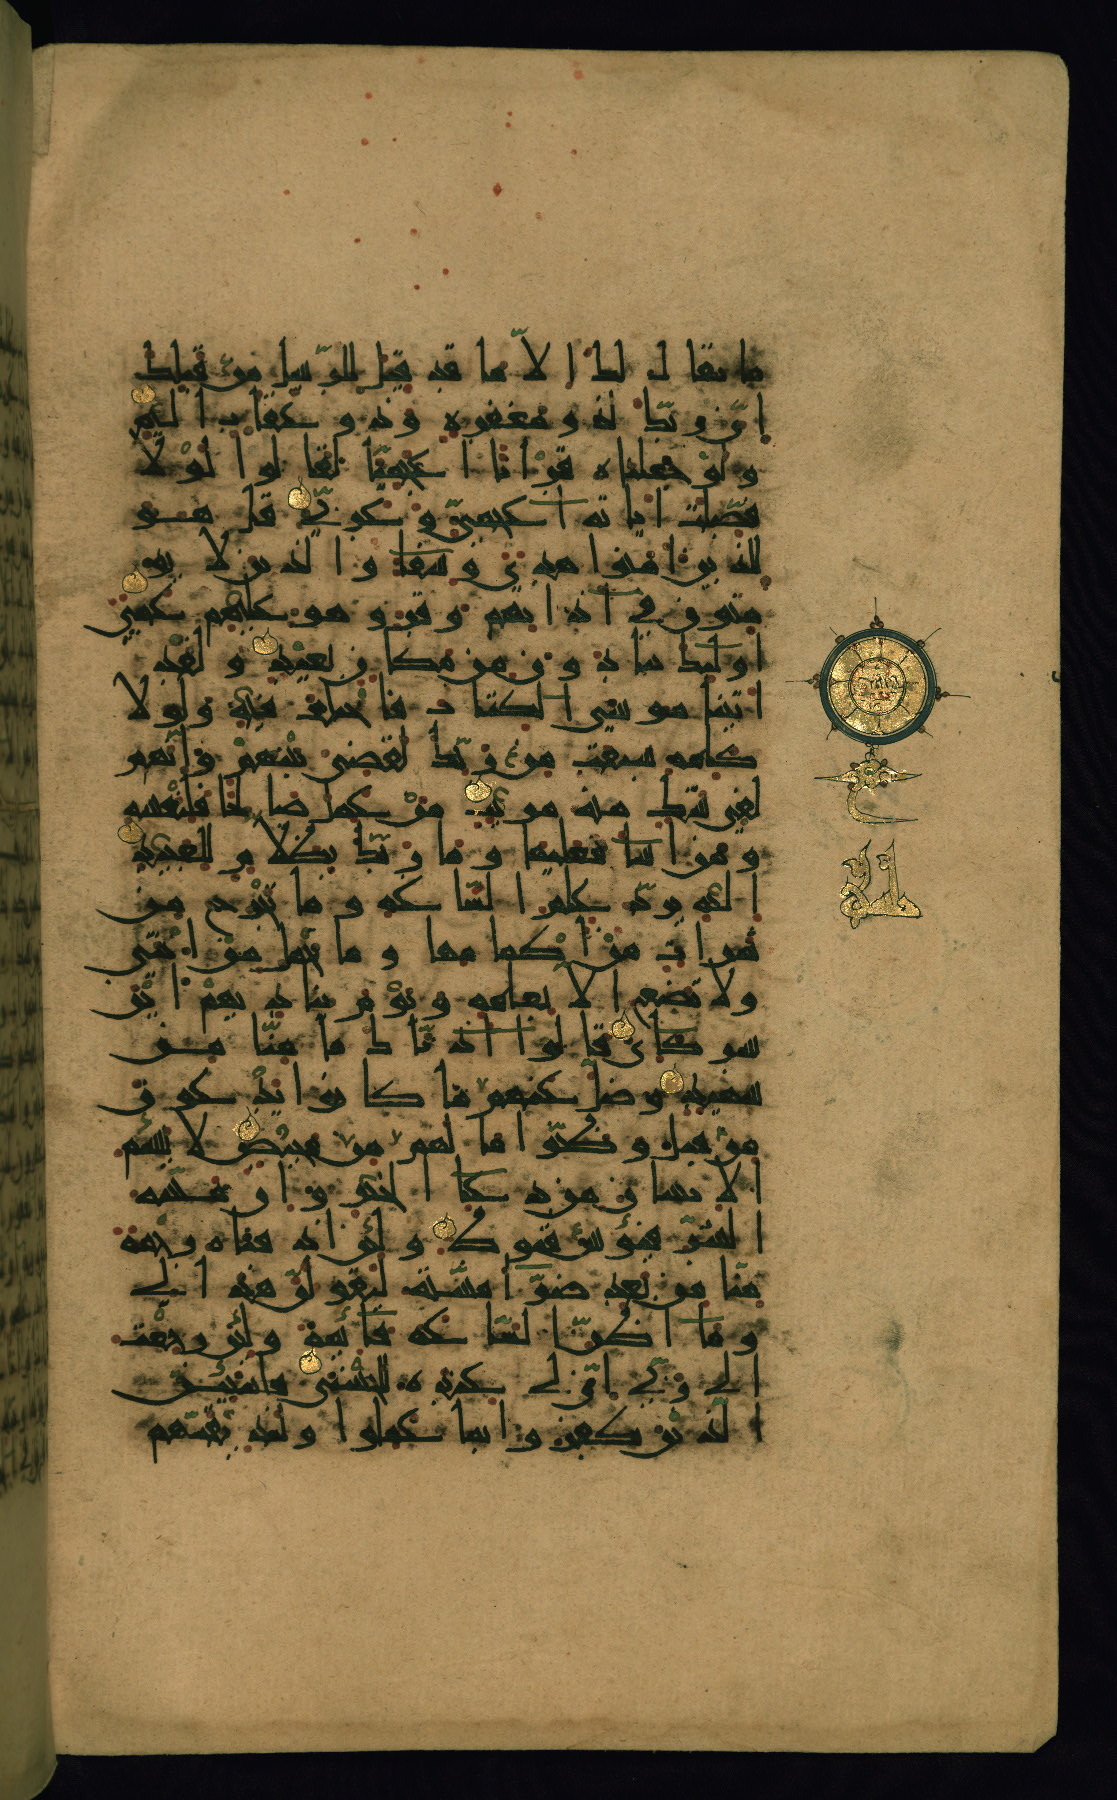 ما يقال لك الا ما قد قيل للرّسل من قبلك
انّ ربّك لذو مغفرة وذو عقاب اليم
ولو جعلناه قرانا اعجميّا لقالوا لولا
فصّلت اياته اعجميّ وعربيّ قل هو
للذين امنوا هدى وشفا والذين لا يو
منون في اذانهم وقر وهو عليهم عمى
اولئك ينادون من مكان بعيد ولقد
اتينا موسى الكتاب فاختلف فيه ولولا
كلمة سبقت من ربّك لقضي بينهم وانّهم
لفي شكّ منه مريب من عمل صالحا فلنفسه
ومن اسا فعليها وما ربّك بظلّام للعبيد
اليه يردّ علم السّاعة وما تخرج من
ثمرات من اكمامها وما تحمل من انثى
ولا تضع الا بعلمه ويوم يناديهم اين
شركاي قالوا اذنّاك ما منّا من
شهيد وضلّ عنهم ما كانوا يدعون
من قبل وظنّوا ما لهم من محيص لا يسئم
الانسان من دعا الخير وان مسّه
الشّر فيؤس قنوط ولئن اذقناه رحمة
منّا من بعد ضرّا مسّته ليقولنّ هذا لي
وما اظنّ السّاعة قائمة ولئن رجعت
الى ربّي انّ لي عنده للحسنى فلننبئن
الّذين كفروا بما عملوا ولنذيقنّهم